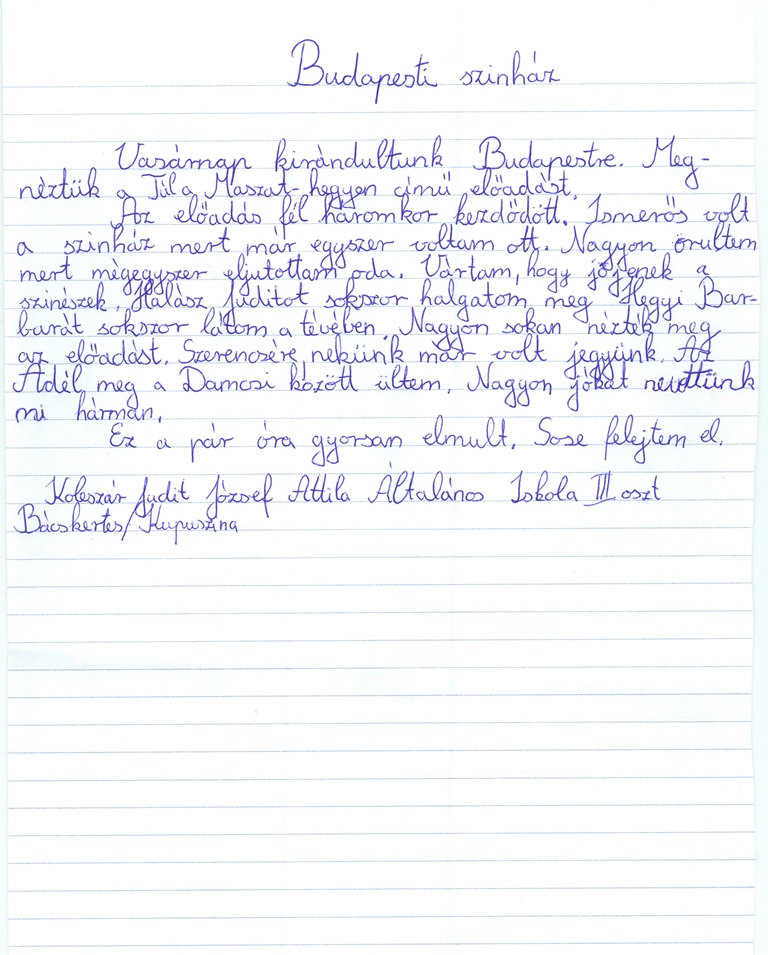 Budapesti szinház
Vasárnap kirándultunk Budapestre. Meg-
néztük a Túl a Maszat-hegyen című előadást.
Az előadás fél háromkor kezdődött. Ismerős volt
a szinház mert már egyszer voltam ott. Nagyon örültem
mert mégegyszer eljutottam oda. Vártam, hogy jöjjenek a
szinészek. Halász Juditot sokszor halgatom, meg Hegyi Bar-
barát sokszor látom a tévében. Nagyon sokan nézték meg
az előadást. Szerencsére nekünk már volt jegyünk. Az
Adél meg a Damcsi között ültem. Nagyon jókat nevettünk
mi hárman.
Ez a pár óra gyorsan elmult. Sose felejtem el.
Koleszár Judit József Attila Általános Iskola III oszt
Bácskertes/Kupuszina